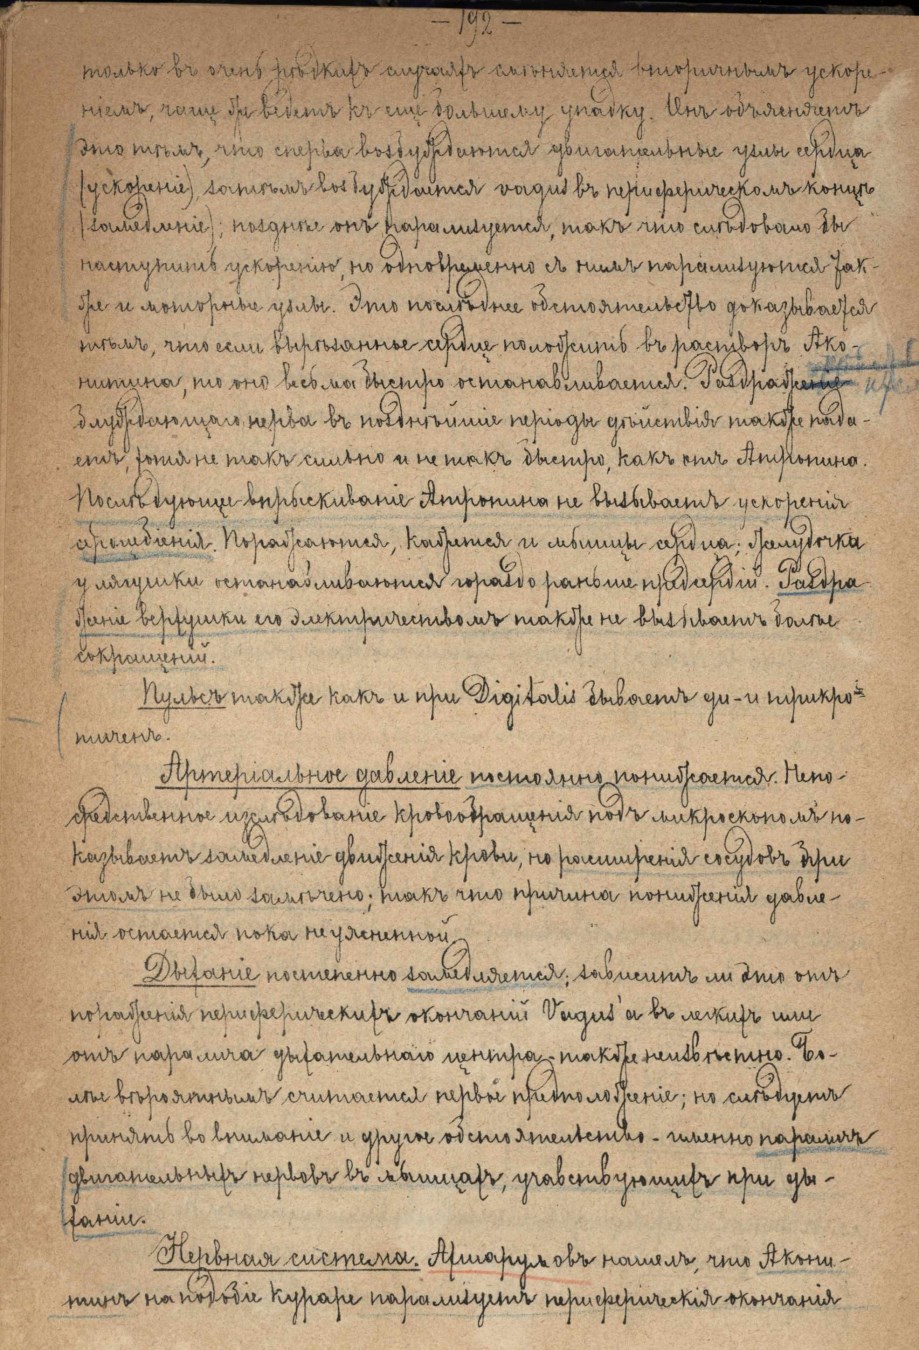 — 192 —
только въ очень рѣдкихъ случаяхъ смѣняется вторичнымъ ускоре-
ніемъ, чаще же ведетъ къ еще большему упадку. Онъ объясняетъ
это тѣмъ, что сперва возбуждаются двигательные узлы сердца
(ускореніе), затѣмъ возбуждается vagus въ периферическомъ концѣ
(замедленіе); позднѣе онъ парализуется, такъ что слѣдовало бы
наступить ускоренію, но одновременно съ нимъ парализуются так-
же и моторные узлы. Это послѣднее обстоятельство доказывается
тѣмъ, что если вырѣзанное сердце положить въ растворъ Ако-
нитина, то оно весьма быстро останавливается. Раздраженіе
блуждающаго нерва въ позднѣйшіе періоды дѣйствія также пада-
етъ, хотя не такъ сильно и не такъ быстро, какъ отъ Атропина.
Послѣдующее впрыскиваніе Атропина не вызываетъ ускоренія
сердцебіенія. Поражаются, кажется и мышцы сердца; желудочки
у лягушки останавливаются гораздо раньше предсердій. Раздра-
женіе верхушки его электричествомъ также не вызываетъ болѣе
сокращеній.
Пульсъ также какъ и при Digitalis бываетъ ди- и трикро-
тиченъ.
Артеріальное давленіе постоянно понижается. Непо-
средственное изслѣдованіе кровообращенія подъ микроскопомъ по-
казываетъ замедленіе движенія крови, но расширенія сосудовъ при
этомъ не было замѣчено; такъ что причина пониженія давле-
нія остается пока неуясненной.
Дыханіе постепенно замедляется; зависитъ ли это отъ
пораженія периферическихъ окончаній Vagus'а въ легкихъ или
отъ паралича дыхательнаго центра - также неизвѣстно. Бо-
лѣе вѣроятнымъ считается первое предположеніе; но слѣдуетъ
принять во вниманіе и другое обстоятельство - именно параличъ
двигательныхъ нервовъ въ мышцахъ, учавствующихъ при ды-
ханіи.
Нервная система. Ахшарумовъ нашелъ, что Акони-
тинъ на подобіе Кураре парализуетъ периферическія окончанія